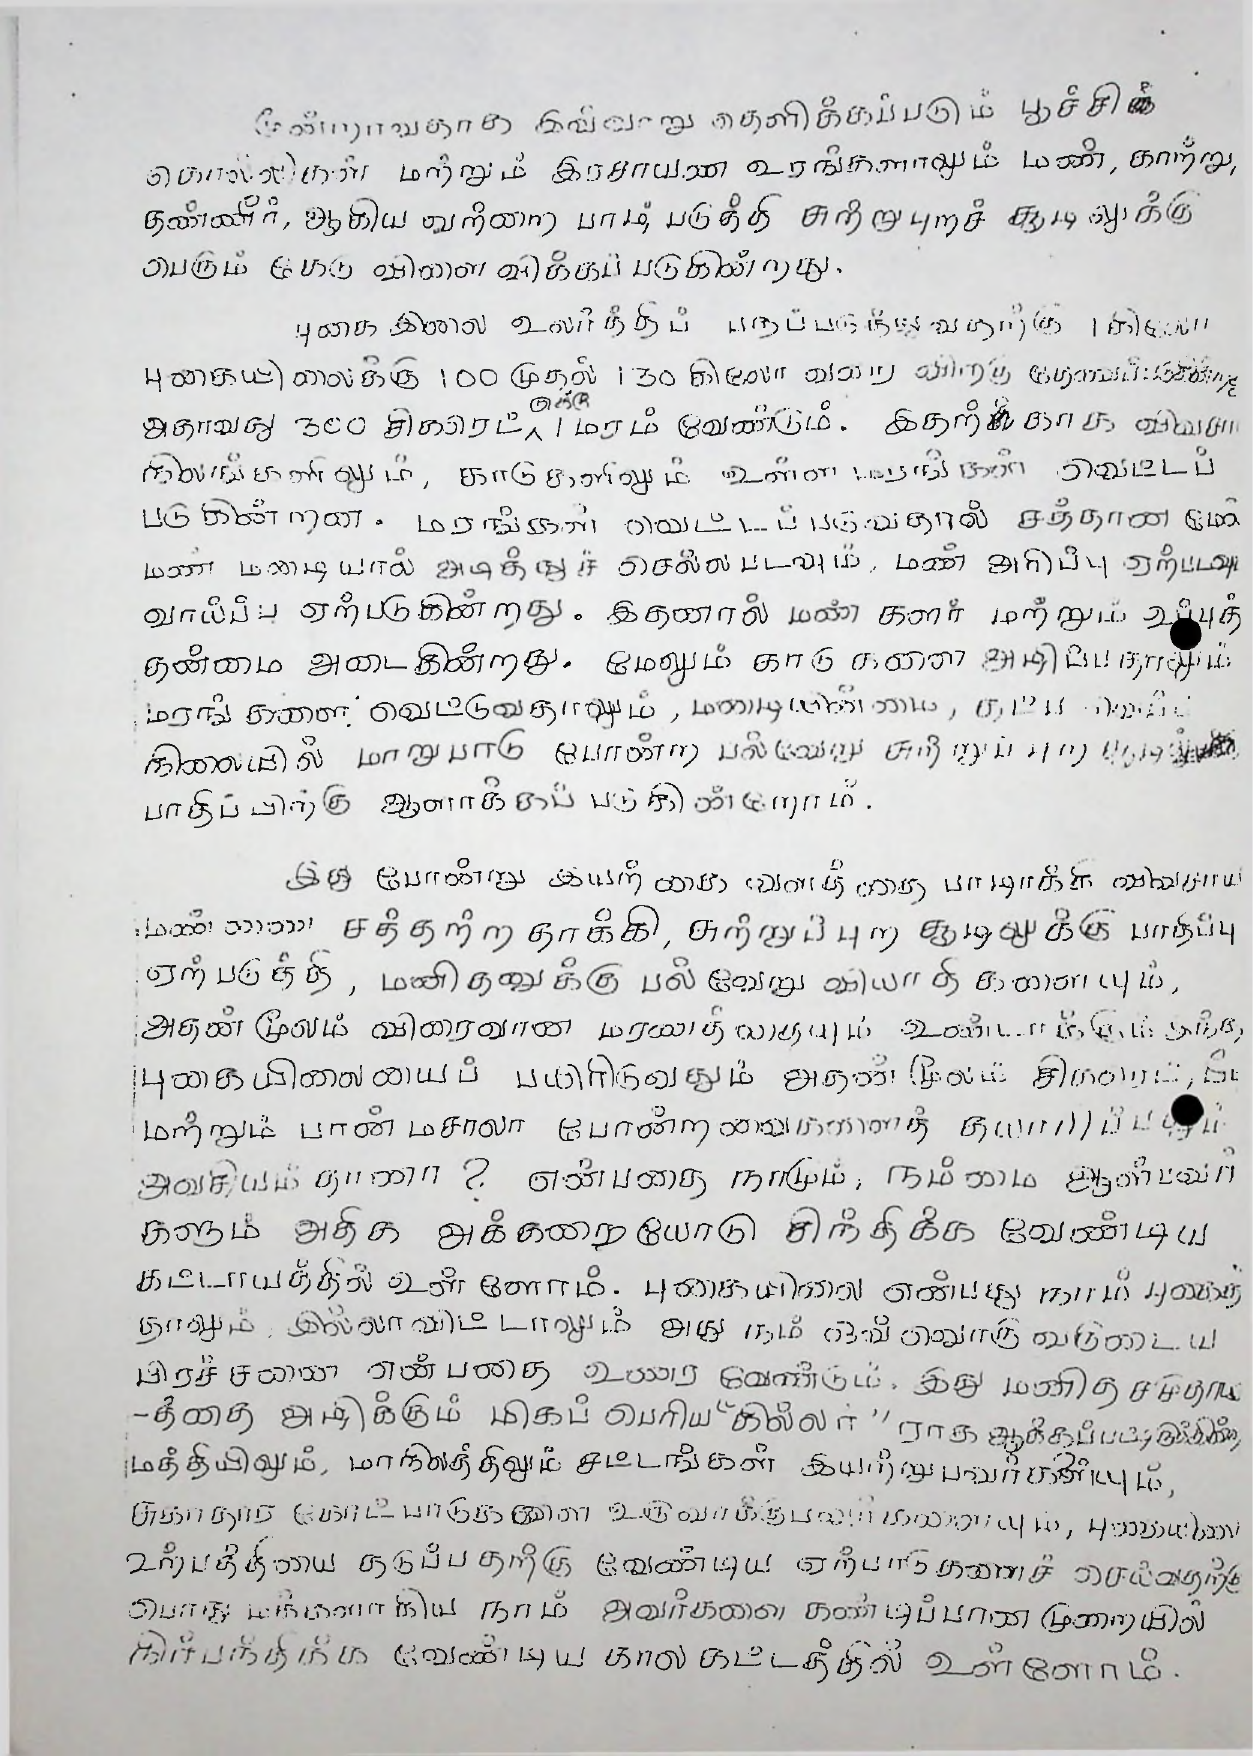 மூன்றாவதாக இவ்வாறு தெளிக்கப்படும் பூச்சிக்
கொல்லிகள் மற்றும் இரசாயண உரங்களாலும் மண், காற்று,
தண்ணீர், ஆகிய வற்றை பாழ் படுத்தி சுற்றுபுறச் சூழலுக்கு
பெரும் கேடு விளை விக்கப் படுகின்றது.
புகை இலை உலர்த்திப் பதப்படுத்துவதற்கு 1 கிலோ
புகையிலைக்கு 100 முதல் 130 கிலோ வரை விறகு
அதாவது 300 சிகரெட்டுக்கு 1 மரம் வேண்டும். இதற்காக விவசா
நிலங்களிலும், காடுகளிலும் உள்ள மரங்கள் வெட்டப்
படுகின்றன. மரங்கள் வெட்டப் படுவதால் சத்தான மேல்
மண் மழையால் அடித்துச் செல்லபடவும், மண் அரிப்பு ஏற்படவு
வாய்ப்பு ஏற்படுகின்றது. இதனால் மண் களர் மற்றும் உப்புத்
தன்மை அடைகின்றது. மேலும் காடு களை அழிப்பதாலும்
மரங் களை வெட்டுவதாலும், மழையின்மை, தட்ப வெப்ப
நிலையில் மாறுபாடு போன்ற பல்வேறு சுற்றுப்புற
பாதிப்பிற்கு ஆளாக்கப் படுகின்றோம்.
இது போன்று இயற்கை வளத்தை பாழாக்கி விவசாய
மண்ணை சத்தற்ற தாக்கி, சுற்றுப்புற சூழலுக்கு பாதிப்பு
ஏற்படுத்தி, மனிதனுக்கு பல்வேறு வியாதி களையும்,
அதன் மூலம் விரைவான மரணத்தையும் உண்டாக்கும் இந்த
புகையிலையைப் பயிரிடுவதும் அதன் மூலம் சிகரெட்,
மற்றும் பான் மசாலா போன்றவைகளைத் தயாரிப்பதும்
அவசியம் தானா? என்பதை நாமும், நம்மை ஆள்பவர்
களும் அதிக அக்கறையோடு சிந்திக்க வேண்டிய
கட்டாயத்தில் உள்ளோம். புகையிலை என்பது நாம் புகைத்
தாலும், இல்லாவிட்டாலும் அது நம் ஒவ்வொரு வருடைய
பிரச்சனை என்பதை உணர வேண்டும். இது மனித சமுதாய
-த்தை அழிக்கும் மிகப் பெரிய "கில்லர்" ராக
மத்தியிலும், மாநிலத்திலும் சட்டங்கள் இயற்றுபவர்களியும்,
சுகாதார கோட்பாடுகளை உருவாக்குபவர்களையும், புகையிலை
உற்பத்தியை தடுப்பதற்கு வேண்டிய ஏற்பாடுகளைச் செய்வதற்கு
பொது மக்களாகிய நாம் அவர்களை கண்டிப்பான முறையில்
நிர்பந்திக்க வேண்டிய கால கட்டத்தில் உள்ளோம்.